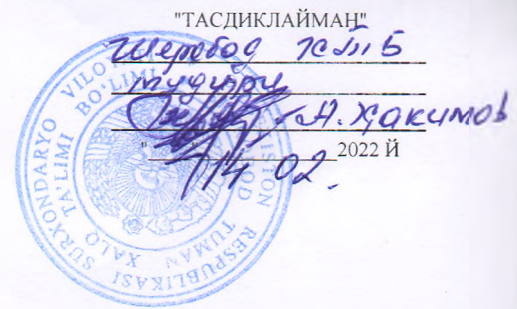 "ТАСДИКЛАЙМАН"
Шеробод ХТБ
мудири
А.Ҳакимов
"14" 02. 2022 Й
SURXONDARYO VILOYATI
RESPUBLIKASI
TUMAN XALQ TA'LIMI BO'LIMI